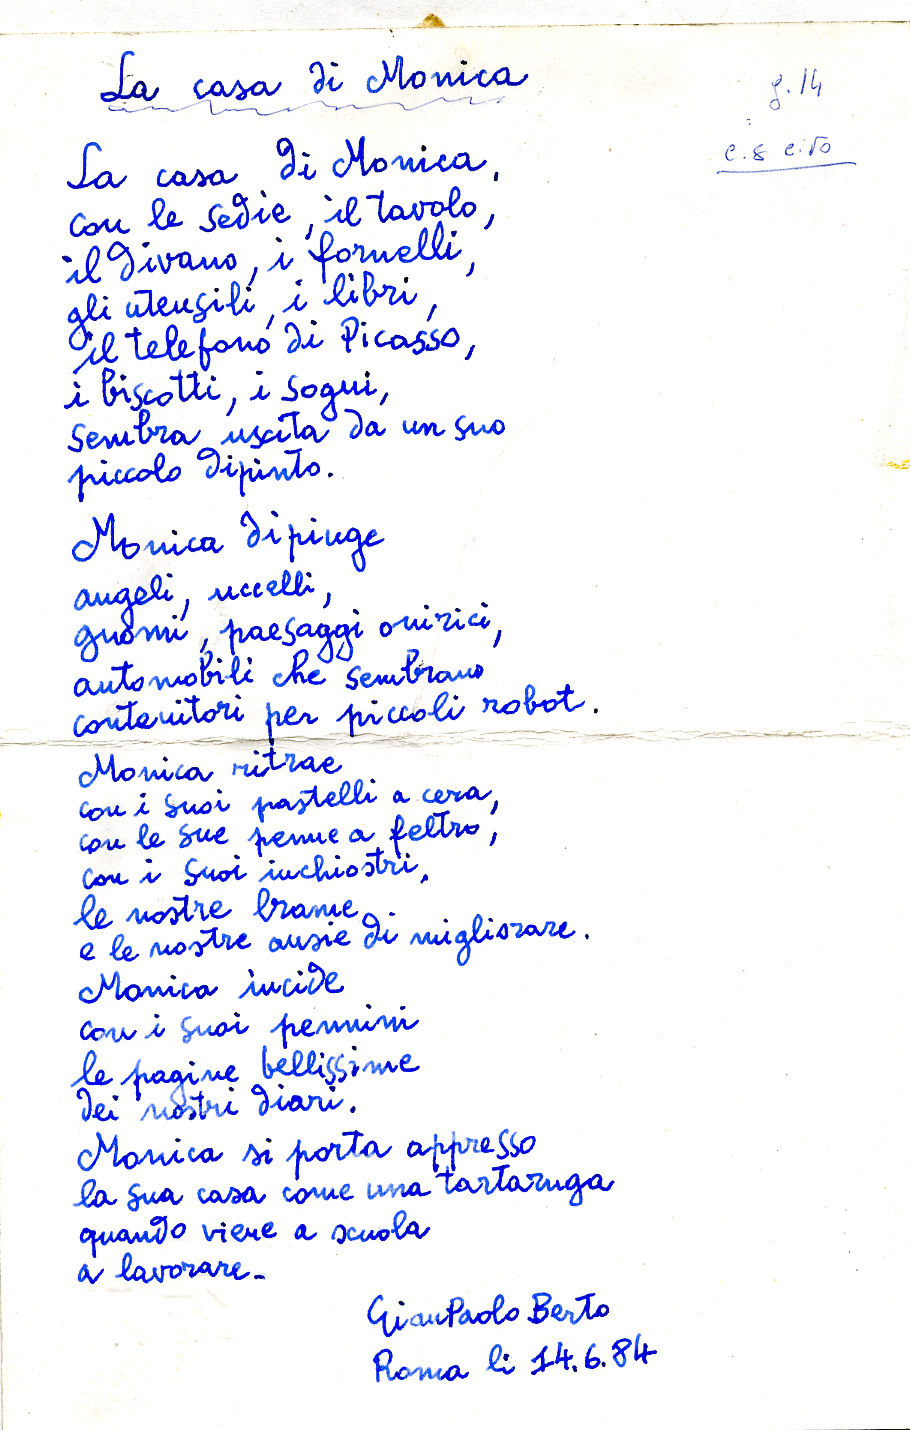 La casa di Monica
g. 14
c. 8
La casa di Monica,
con le sedie, il tavolo,
il divano, i fornelli,
gli utensili, i libri,
il telefono di Picasso,
i biscotti, i sogni,
sembra uscita da un suo
piccolo dipinto.
Monica dipinge
angeli, uccelli,
gnomi, paesaggi onirici,
automobili che sembrano
contenitori per piccoli robot.
Monica ritrae
con i suoi pastelli a cera,
con le sue penne a feltro,
con i suoi inchiostri,
le nostre brame
e le nostre ansie di migliorare.
Monica incide
con i suoi pennini
le pagine bellissime
dei nostri diari.
Monica si porta appresso
la sua casa come una tartaruga
quando viene a scuola
a lavorare.
GianPaolo Berto
Roma li 14.6.84